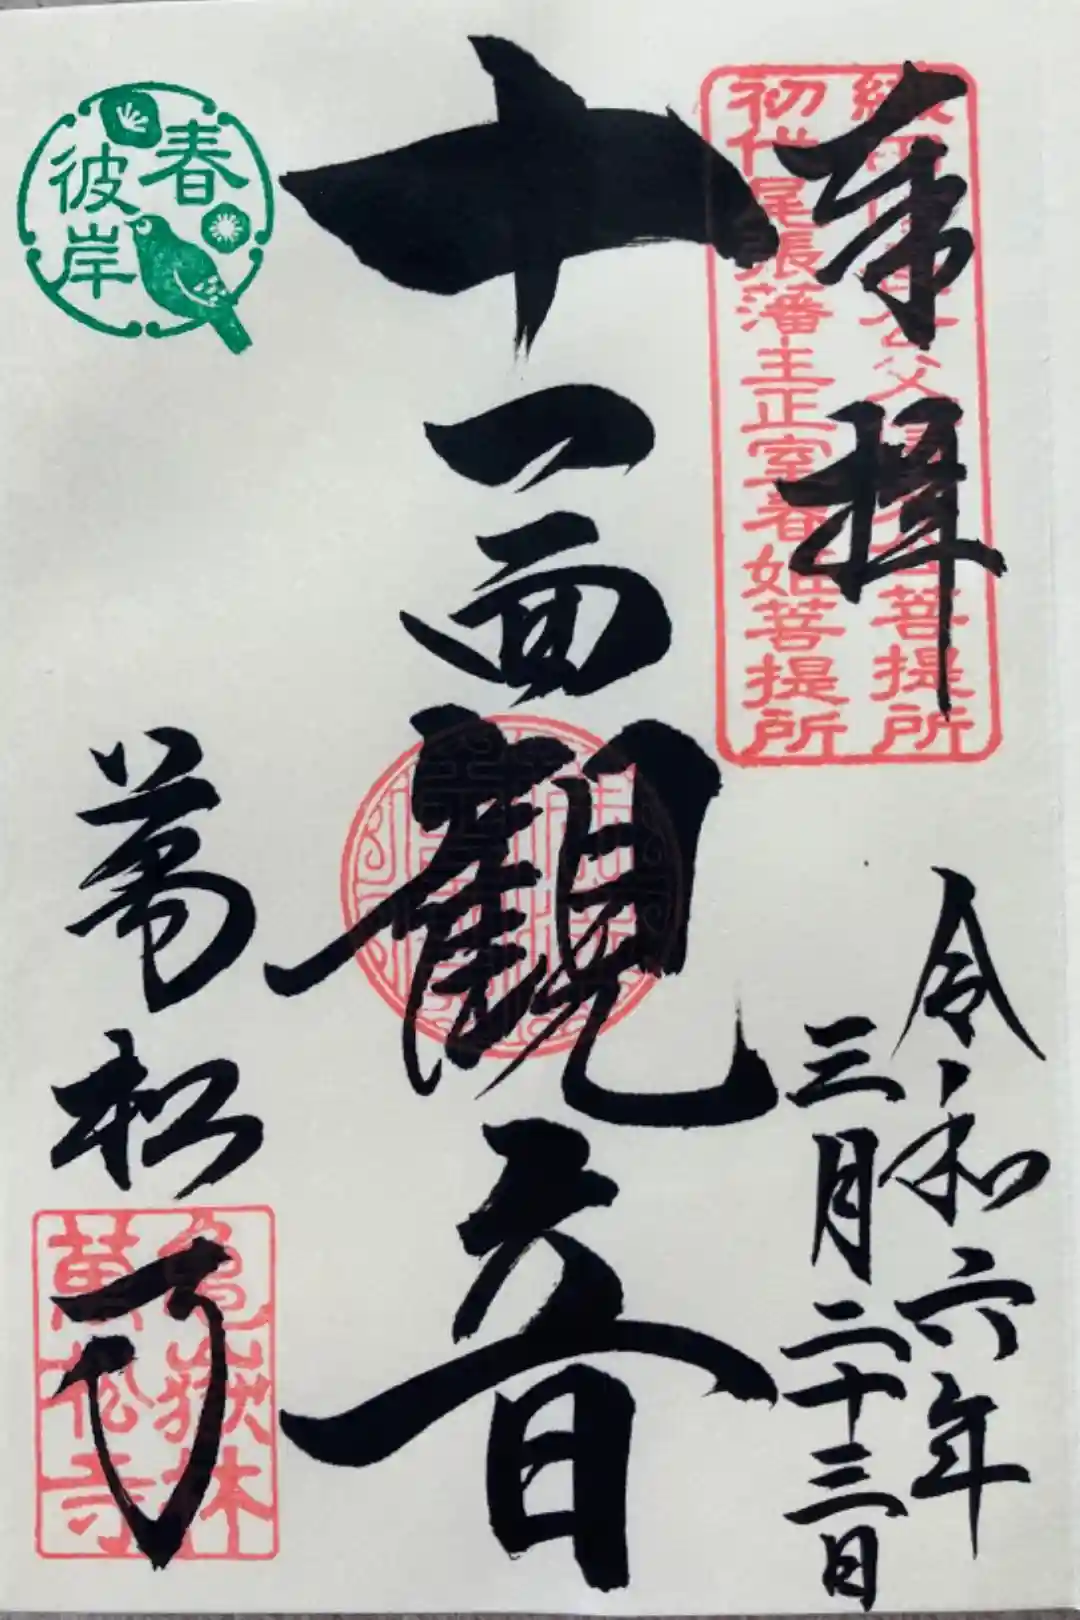 奉拝
初代尾張藩主正室春姫菩提所
令和六年
三月二十三日
十一面観音
春
彼岸
萬松寺
亀嶽林
萬松寺